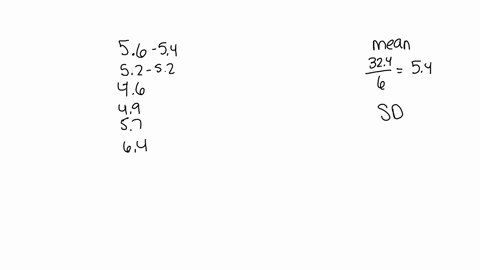 5.6 - 5.4
5.2 - 5.2
4.6
4.9
5.7
6.4
mean
32.4
6
= 5.4
SD